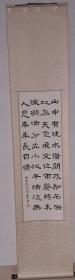 山中有流水借問不知名映
地為天色飛空作雨聲轉來
深澗滿分出小池平恬淡無
人見年年長自清